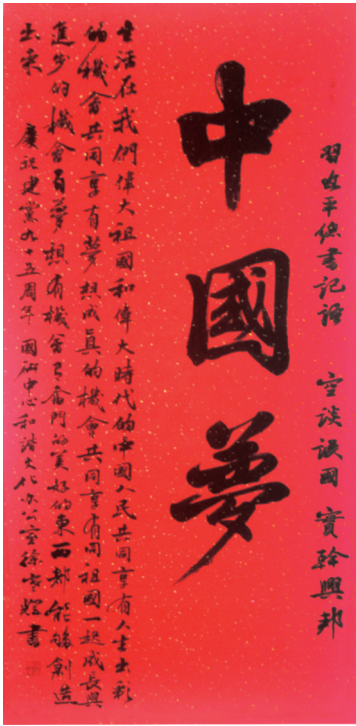 習近平總書記語 空談誤國 實幹興邦
中國夢
生活在我們偉大祖國和偉大時代的中國人民共同享有人生出彩
的機會共同享有夢想成真的機會共同享有同祖國一起成長與
進步的機會有夢想有機會有奮鬥的美好的東西都能够創造
出來 慶祝建黨九十五周年 國研中心和諧文化办公室徐 書